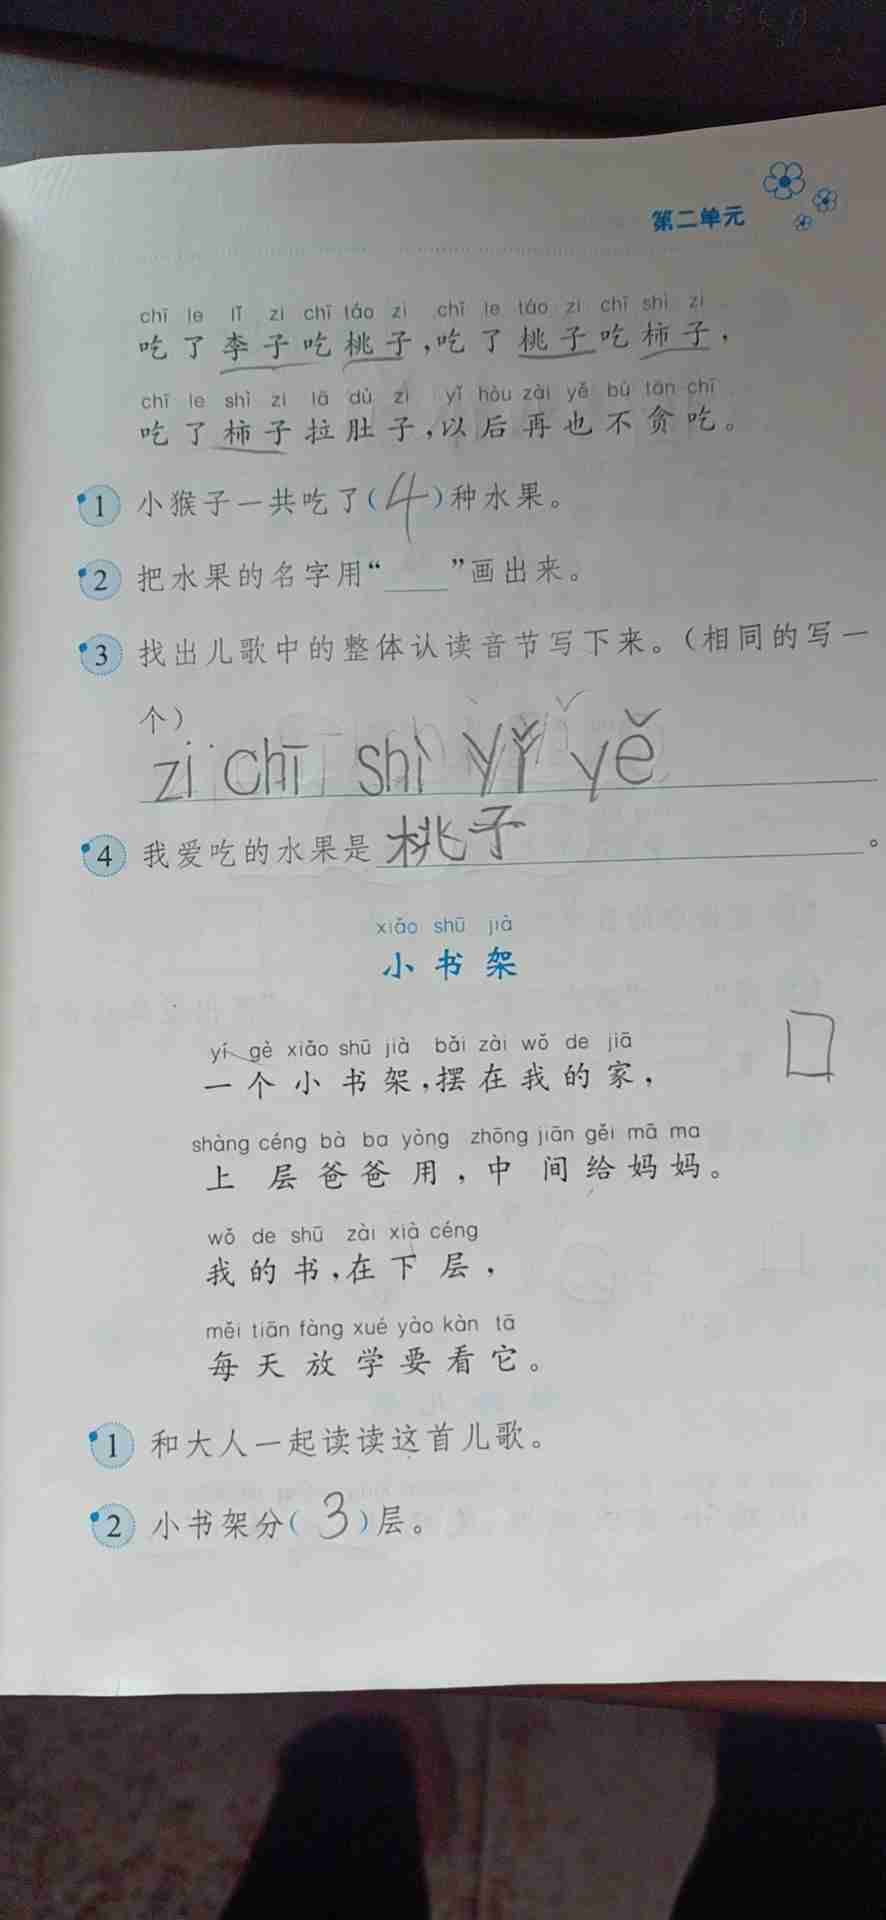 第二单元
chī le lǐ zi chī táo zi chī le táo zi chī shì zi
吃了李子吃桃子,吃了桃子吃柿子,
chī le shì zi lā dù zi yǐ hòu zài yě bù tān chī
吃了柿子拉肚子,以后再也不贪吃。
1 小猴子一共吃了(4)种水果。
2 把水果的名字用“____”画出来。
3 找出儿歌中的整体认读音节写下来。(相同的写一
个)
zi chī shì yǐ yě
4 我爱吃的水果是桃子。
xiǎo shū jià
小书架
yí gè xiǎo shū jià bǎi zài wǒ de jiā
一个小书架,摆在我的家,
shàng céng bà ba yòng zhōng jiān gěi mā ma
上层爸爸用,中间给妈妈。
wǒ de shū zài xià céng
我的书,在下层,
měi tiān fàng xué yào kàn tā
每天放学要看它。
1 和大人一起读读这首儿歌。
2 小书架分(3)层。